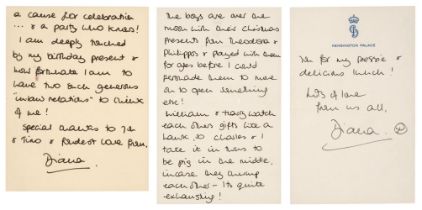 a cause for celebration
... & a party who knows!
I am deeply touched
by my birthday present &
how fortunate I am to
have two such generous
"inlaw relations" to think
of me!
Special thanks to 
& Tino & fondest love from,
Diana.
The boys are over the
moon with their christmas
presents from Theodora &
Philippos & played with them
for ages before I could
persuade them to move
on to open something
else!
William & Harry watch
each others gifts like a
hawk, so Charles & I
take it in turns to
be pig in the middle,
incase they thump
each other - Its quite
exhausting!
KENSINGTON PALACE
for my pressie &
delicious lunch!
Lots of love
from us all,
Diana.